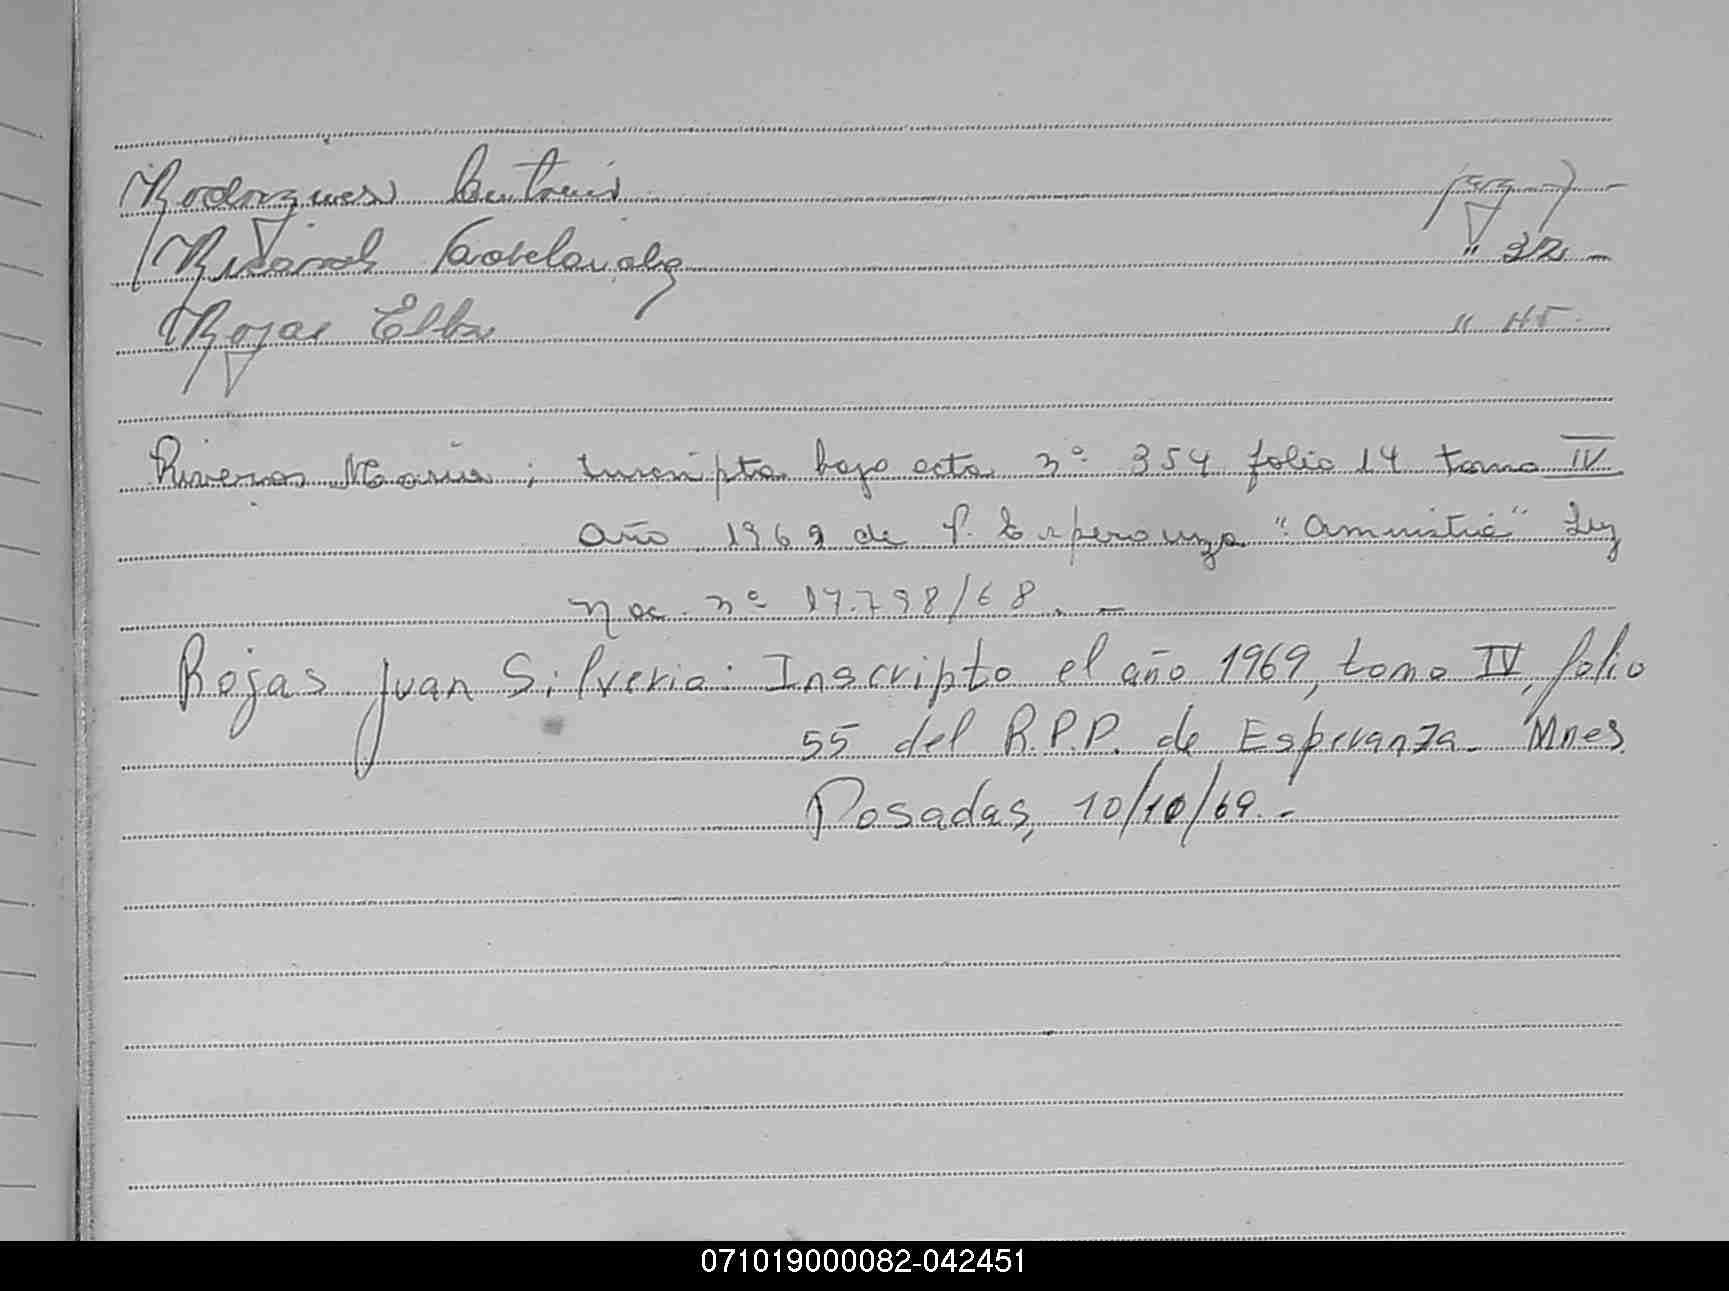 Rodriguez Antonio
Ricardo Adelaida " 32 -
Rojas Elba " 45
Riveros Maria ; Inscripta bajo acta nº 354 folio 14 tomo IV
año 1969 de P. Esperanza "Amnistia" Ley
Nac. nº 17.798/68. -
Rojas Juan Silverio: Inscripto el año 1969, tomo IV, folio
55 del R.P.P. de Esperanza - Mnes.
Posadas, 10/10/69. -
071019000082-042451